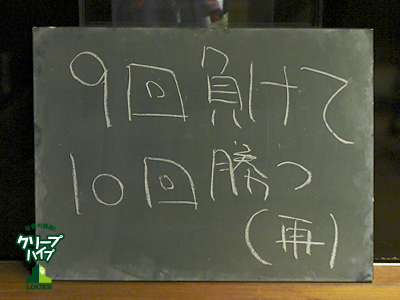 9回負けて
10回勝つ
(再)
クリープ
ハイプ